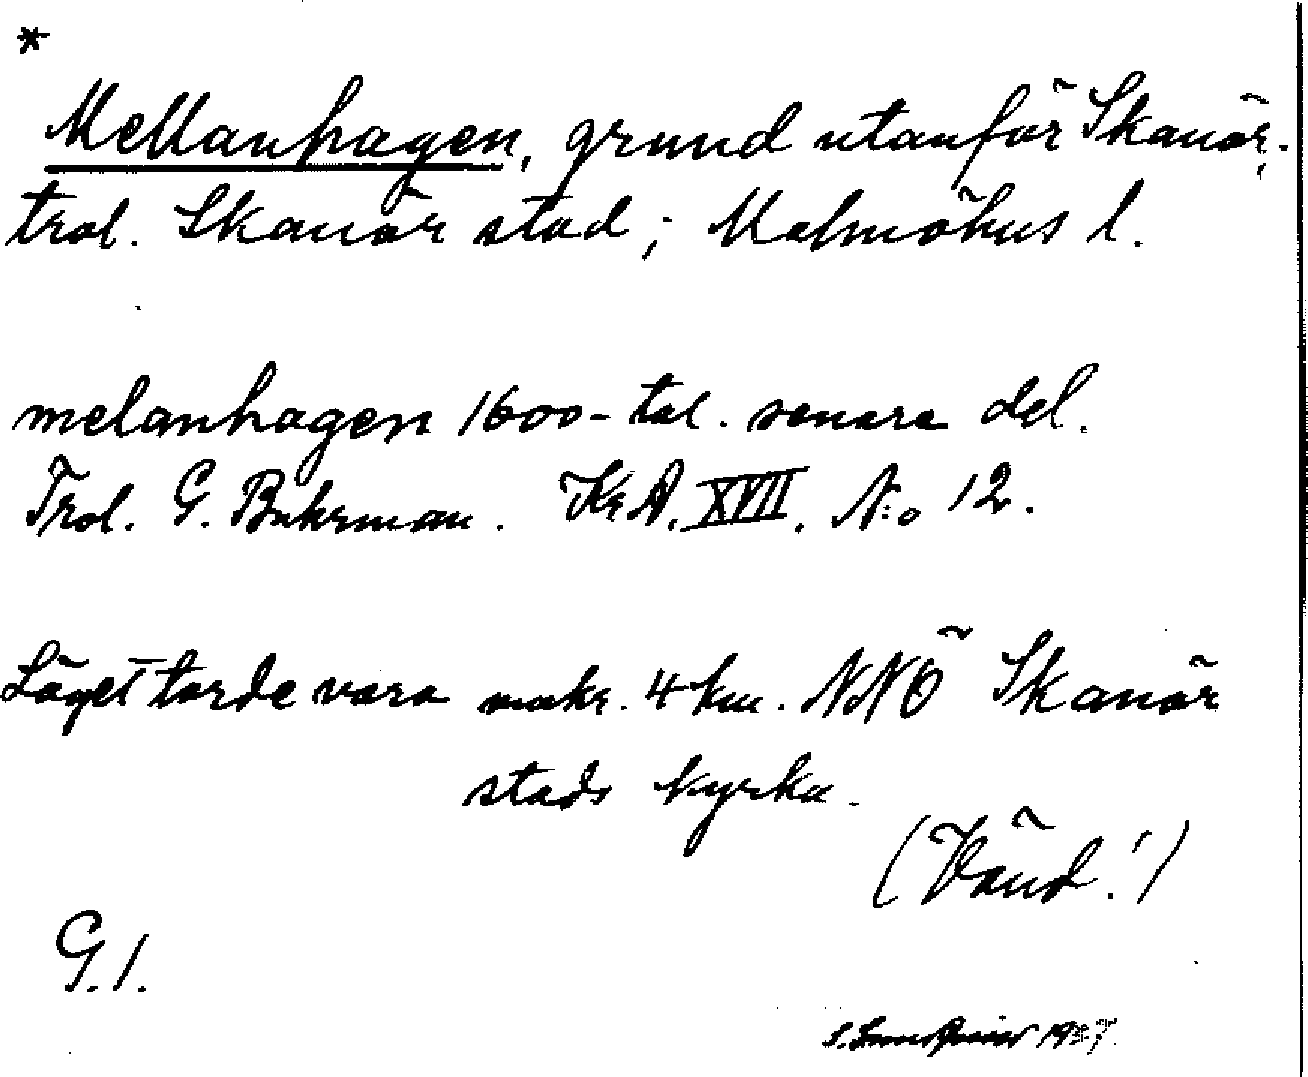 *
Mellanhagen, grund utanför Skanör,
trol. Skanör stad; Malmöhus l.
melanhagen 1600-tal. senare del.
Trol. G. Buhrman. KrA. XVII. N:o 12.
Läget torde vara makr. 4 km. NNÖ Skanör
stads kyrka.
(Vänd!)
G.1.
1937